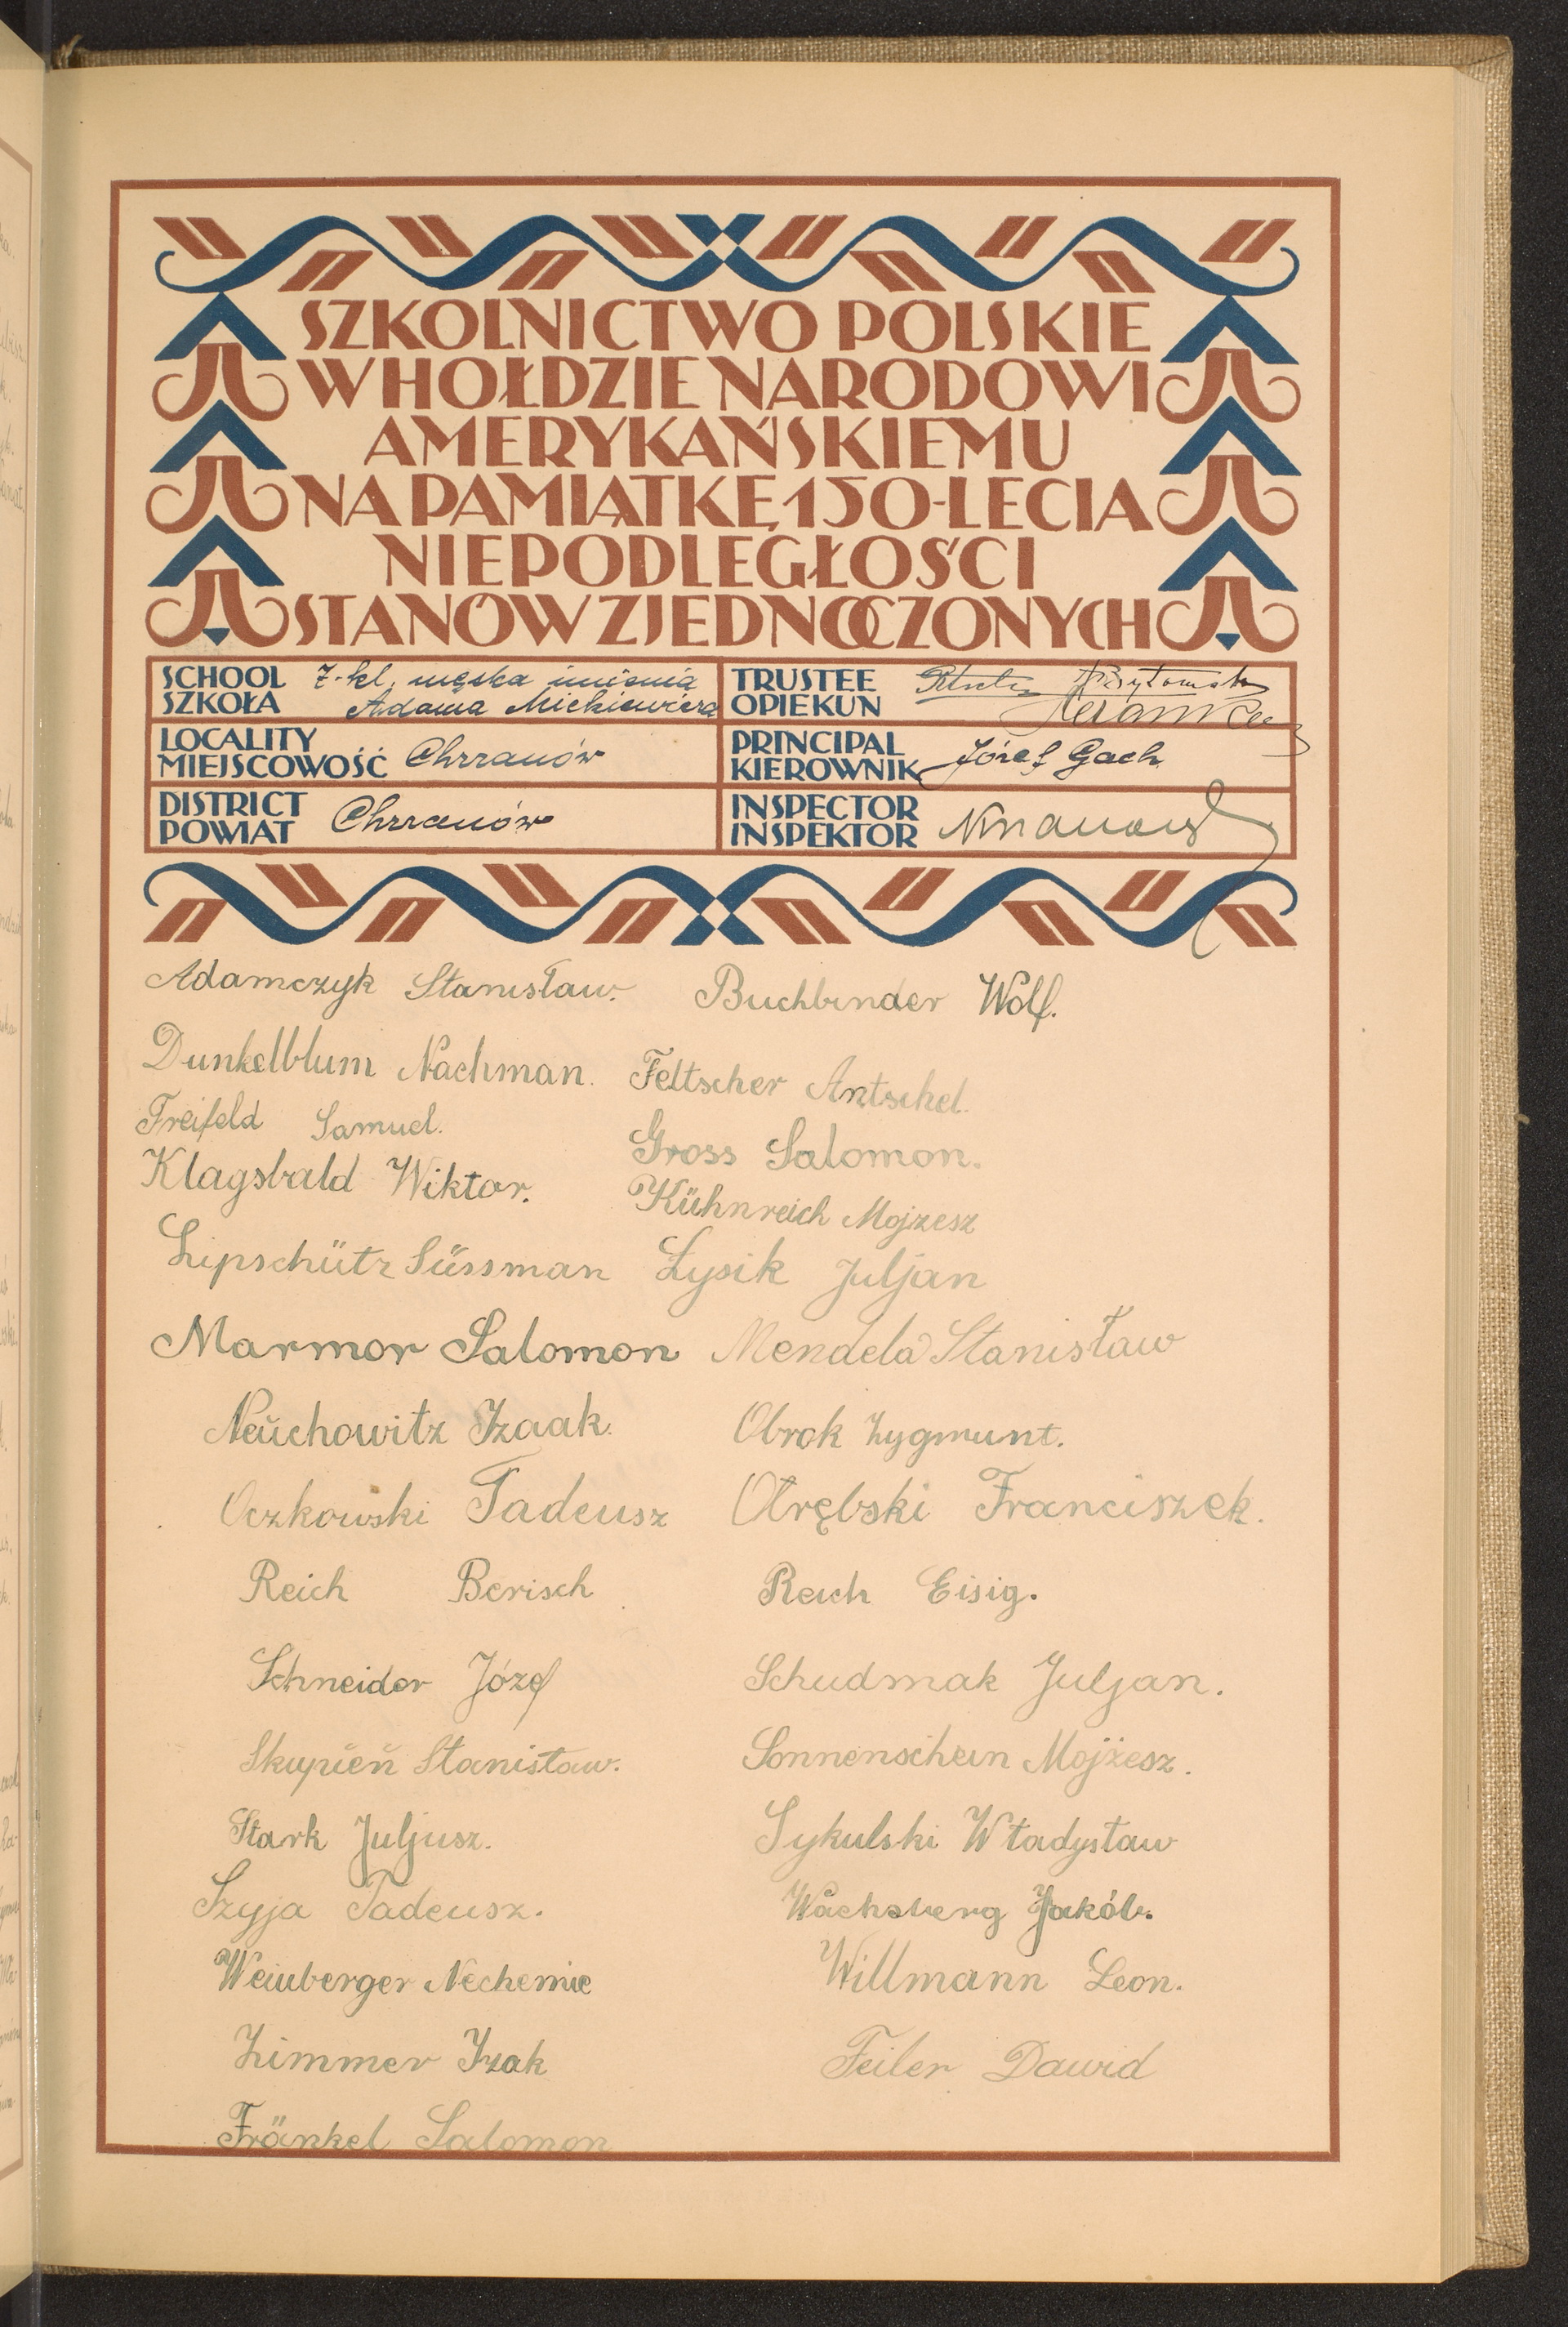 SZKOLNICTWO POLSKIE
W HOŁDZIE NARODOWI
AMERYKAŃSKIEMU
NA PAMIĄTKĘ 150-LECIA
NIEPODLEGŁOŚCI
STANÓW ZJEDNOCZONYCH
SCHOOL 7-kl. męska imienia
SZKOŁA Adama Mickiewicza
TRUSTEE
OPIEKUN
LOCALITY
MIEJSCOWOŚĆ Chrzanów
PRINCIPAL
KIEROWNIK Józef Gach
DISTRICT
POWIAT Chrzanów
INSPECTOR
INSPEKTOR
Adamczyk Stanisław. Buchbinder Wolf.
Dunkelblum Nachman. Feltscher Antschel.
Freifeld Samuel. Gross Salomon.
Klagsbald Wiktor. Kühnreich Mojzesz
Lipschütz Süssman Łysik Juljan
Marmor Salomon Mendela Stanisław
Neŭchowitz Izaak. Obrok Zygmunt.
Oczkowski Tadeusz Otrębski Franciszek.
Reich Berisch Reich Eisig.
Schneider Józef Schudmak Juljan.
Skupień Stanisław. Sonnenschein Mojżesz.
Stark Juljusz. Sykulski Władysław
Szyja Tadeusz. Wachsberg Jakób.
Weinberger Nechemie Willmann Leon.
Zimmer Izak Feiler Dawid
Fränkel Salomon